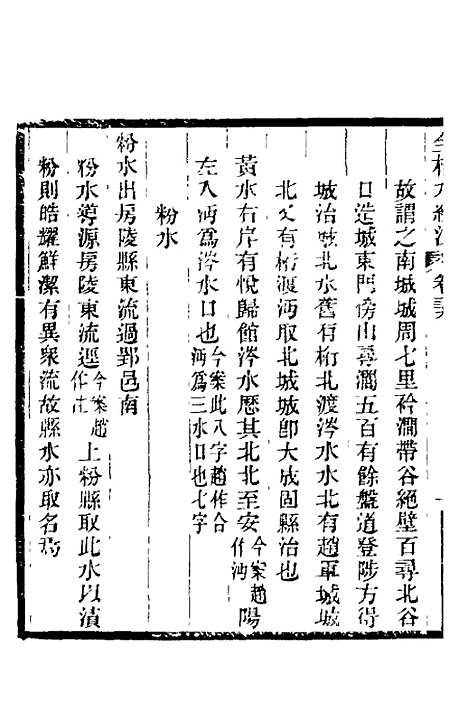 全校水經注卷
故謂之南城城周七里衿澗帶谷絕壁百尋北谷
口造城東門傍山尋澗五百有餘盤道登陟方得
城治城北水舊有桁北渡涔水水北有趙軍城城
北又有桁渡沔取北城城卽大成固縣治也
黃水右岸有悅歸館涔水歷其北北至安今案趙作沔陽
左入沔爲涔水口也今案此八字趙作合沔爲三水口也七字
粉水
粉水出房陵縣東流過郢邑南
粉水導源房陵東流逕今案趙作注上粉縣取此水以漬
粉則皓耀鮮潔有異衆流故縣水亦取名焉